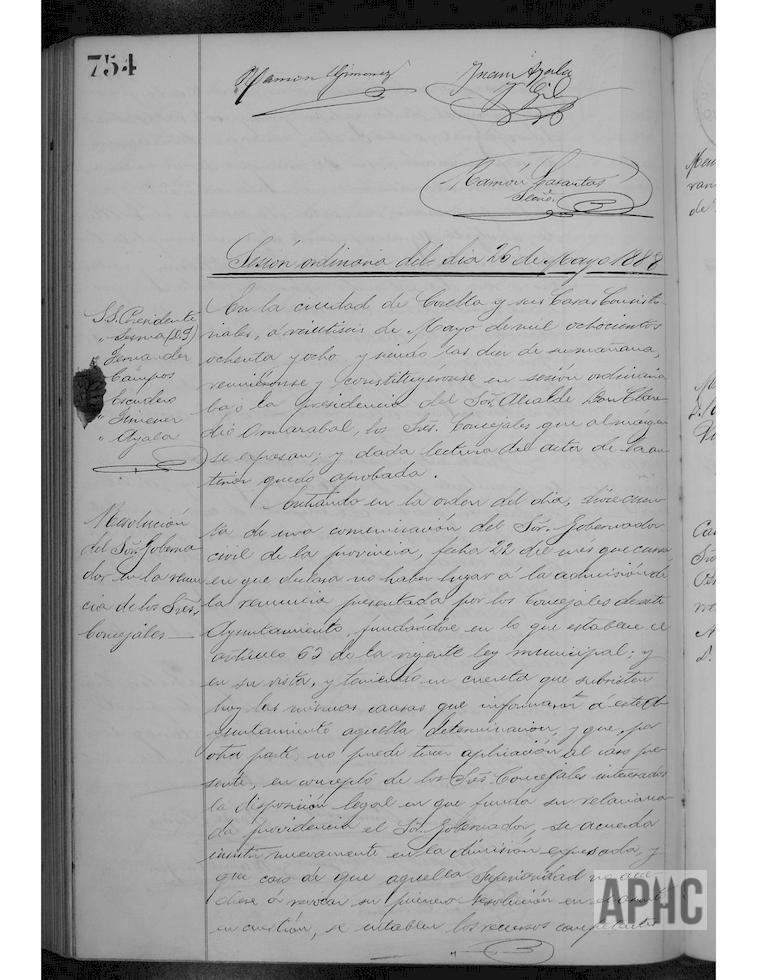 754
Ramon Gimenez
Juan Ayala
y Gil
Ramón
Secrio.
Sesión ordinaria del dia 26 de Mayo 1888
S.S. Presidente
" Serna (D.J)
" Fernandez
" Campos
" Escudero
" Gimenez
" Ayala
En la ciudad de Corella y sus Casas Consisto-
riales, a veintiseis de Mayo de mil ochocientos
ochenta y ocho y siendo las diez de su mañana,
reuniéronse y constituyéronse en sesión ordinaria
bajo la presidencia del Sor. Alcalde Don
los Sres. Concejales que al márgen
se expresan; y dada lectura del acta de la an-
terior quedó aprobada.
Resolución
del Sor. Goberna
dor en la renun
cia de los Sres.
Concejales
Entrando en la orden del dia, dióse cuen-
ta de una comunicación del Sor. Gobernador
civil de la provincia, fecha 22 del mes que cursa
en que declara no haber lugar á la admisión de
la renuncia presentada por los Concejales de este
Ayuntamiento, fundándose en lo que establece el
artículo 63 de la vigente ley municipal; y
en su vista, y teniendo en cuenta que subsisten
hoy las mismas causas que informaron a este A-
yuntamiento aquella determinacion, y que, por
otra parte, no puede tener aplicación al caso pre-
sente, en concepto de los Sres. Concejales interesados
la disposición legal en que funda su relaciona-
da providencia el Sor. Gobernador, se acuerda
insistir nuevamente en la dimisión expresada, y
que caso de que aquella Superioridad no acce-
diese á revocar su primera resolución en el asunto
en cuestión, se entablen los recursos competentes
APHC